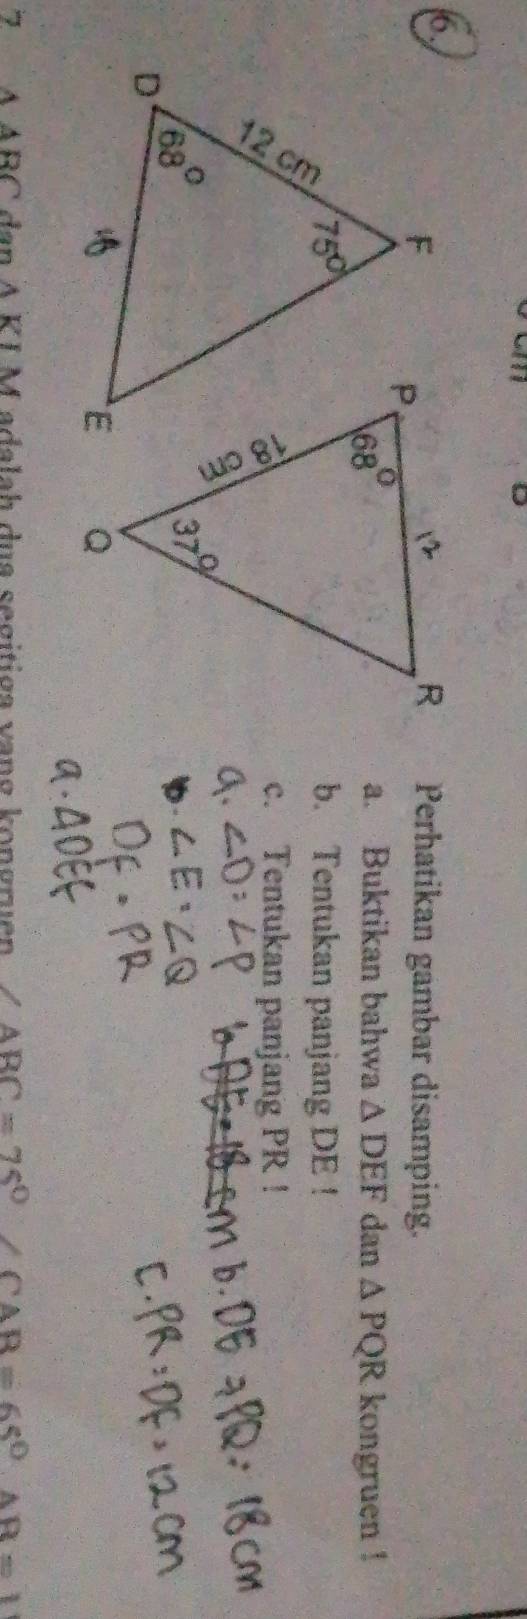 6.
D
12 cm
68°
75°
F
18
E
P
68°
12
18 cm
37°
Q
R
Perhatikan gambar disamping.
a. Buktikan bahwa Δ DEF dan Δ PQR kongruen !
b. Tentukan panjang DE !
c. Tentukan panjang PR !
a. ∠D = ∠P
∠E = ∠Q
DF = PR
a. ΔDEF
b. DE = PQ = 18 cm
c. PR = DF = 12 cm
7. Δ ABC dan Δ KLM adalah dua segitiga yang kongruen ∠ ABC = 75° ∠ CAB = 65° AB = 1